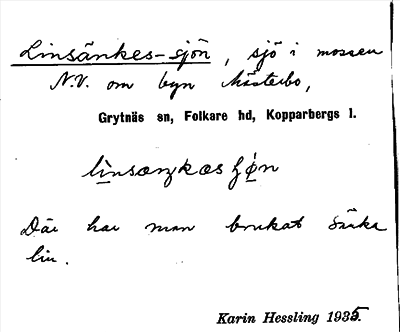 Linsänkes-sjön, sjö i mossen
N.V. om byn Mästerbo,
Grytnäs sn, Folkare hd, Kopparbergs l.
Där har man brukat sänka
lin.
Karin Hessling 1935.